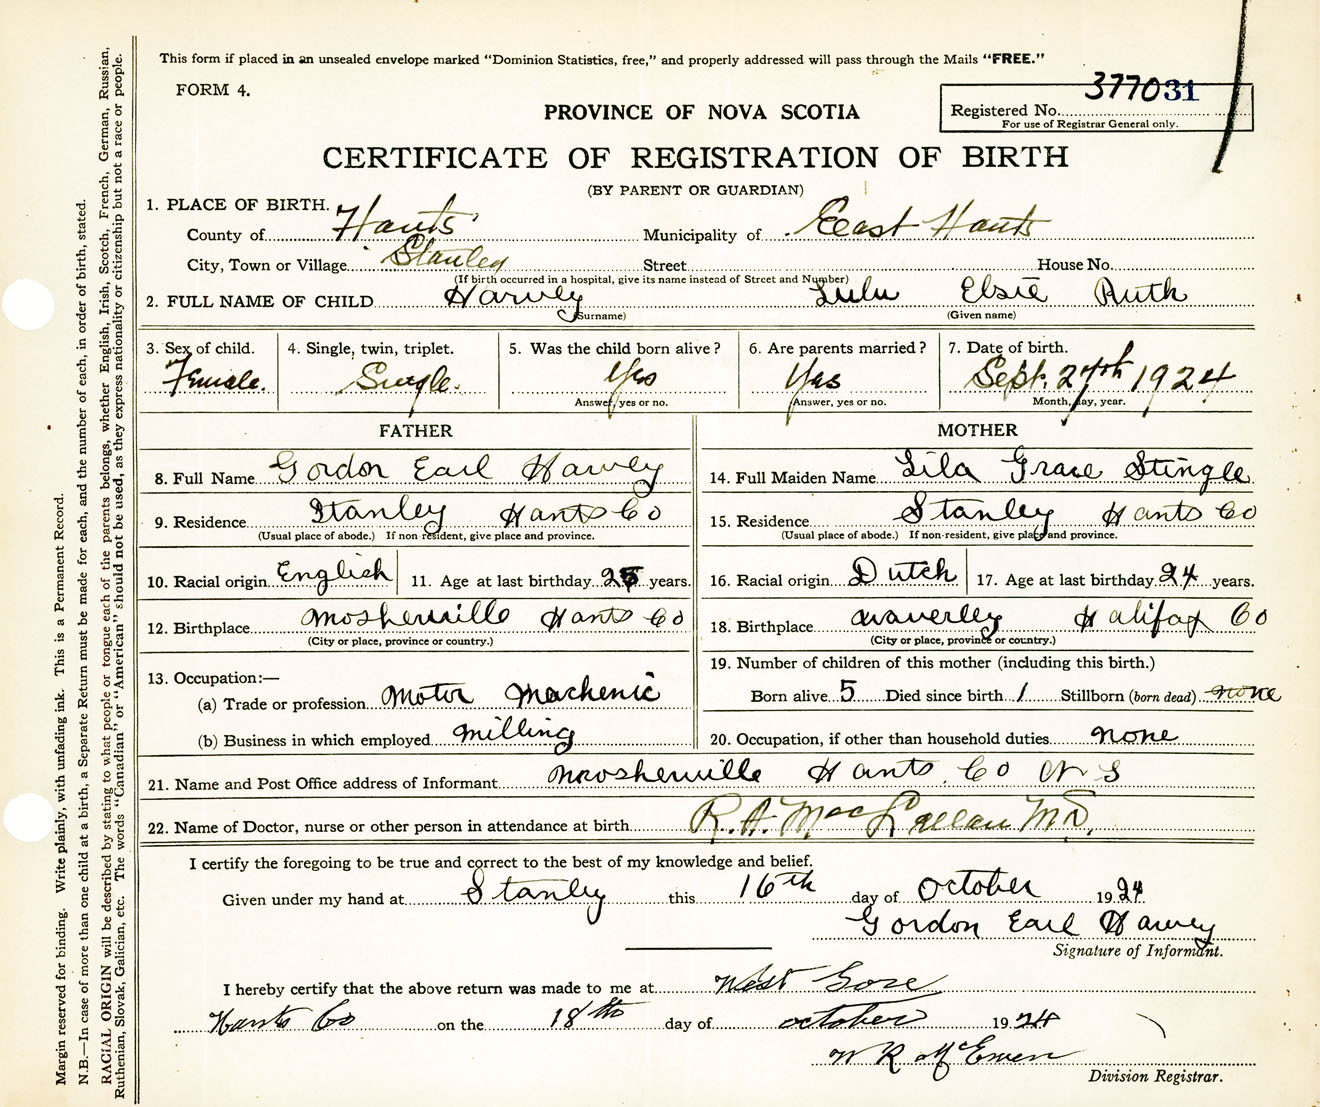 This form if placed in an unsealed envelope marked "Dominion Statistics, free," and properly addressed will pass through the Mails "FREE."
FORM 4.
377031
Registered No.
For use of Registrar General only.
PROVINCE OF NOVA SCOTIA
CERTIFICATE OF REGISTRATION OF BIRTH
(BY PARENT OR GUARDIAN)
1. PLACE OF BIRTH.
County of Hants Municipality of East Hants
City, Town or Village Stanley Street House No.
(If birth occurred in a hospital, give its name instead of Street and Number)
2. FULL NAME OF CHILD Harvey Lulu Elsie Ruth
(Surname) (Given name)
3. Sex of child. 4. Single, twin, triplet. 5. Was the child born alive? 6. Are parents married? 7. Date of birth.
Female. Single. Yes Yes Sept. 27th 1924
Answer, yes or no. Answer, yes or no. Month, day, year.
FATHER MOTHER
8. Full Name Gordon Earl Harvey 14. Full Maiden Name Lila Grace Stingle
9. Residence Stanley Hants Co 15. Residence Stanley Hants Co
(Usual place of abode.) If non-resident, give place and province. (Usual place of abode.) If non-resident, give place and province.
10. Racial origin English 11. Age at last birthday 25 years. 16. Racial origin Dutch 17. Age at last birthday 24 years.
12. Birthplace Mosherville Hants Co 18. Birthplace Waverley Halifax Co
(City or place, province or country.) (City or place, province or country.)
13. Occupation:— 19. Number of children of this mother (including this birth.)
(a) Trade or profession Motor Machenic Born alive 5 Died since birth 1 Stillborn (born dead) none
(b) Business in which employed Milling 20. Occupation, if other than household duties none
21. Name and Post Office address of Informant Mosherville Hants Co N S
22. Name of Doctor, nurse or other person in attendance at birth R. A. MacLellan M.D.
I certify the foregoing to be true and correct to the best of my knowledge and belief.
Given under my hand at Stanley this 16th day of October 1924
Gordon Earl Harvey
Signature of Informant.
I hereby certify that the above return was made to me at West Gore
Hants Co on the 18th day of october 1924
W R McEwen
Division Registrar.
Margin reserved for binding. Write plainly, with unfading ink. This is a Permanent Record.
N.B.—In case of more than one child at a birth, a Separate Return must be made for each, and the number of each, in order of birth, stated.
RACIAL ORIGIN will be described by stating to what people or tongue each of the parents belongs, whether English, Irish, Scotch, French, German, Russian,
Ruthenian, Slovak, Galician, etc. The words "Canadian" or "American" should not be used, as they express nationality or citizenship but not a race or people.